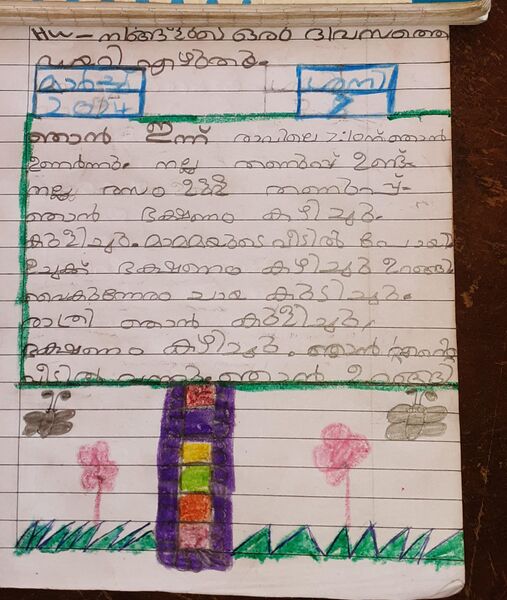 HW - നിങ്ങളുടെ ഒരു ദിവസത്തെ
പറ്റി എഴുതുക.
മാർച്ച് ശനി
2024
ഞാൻ ഇന്ന് രാവിലെ 7:10ന് ഞാൻ
ഉണർന്നു. നല്ല തണുപ്പ് ഉണ്ട്.
നല്ല രസം ഉള്ള തണുപ്പ്.
ഞാൻ ഭക്ഷണം കഴിച്ചു.
കുളിച്ചു. മാമയുടെ വീടിൽ പോയി
ഉച്ചക്ക് ഭക്ഷണം കഴിച്ചു ഉറങ്ങി
വൈകുന്നേരം ചായ കുടിച്ചു.
രാത്രി ഞാൻ കുളിച്ചു,
ഭക്ഷണം കഴിച്ചു. ഞാൻ എന്റെ
വീടിൽ വന്നു. ഞാൻ ഉറങ്ങി